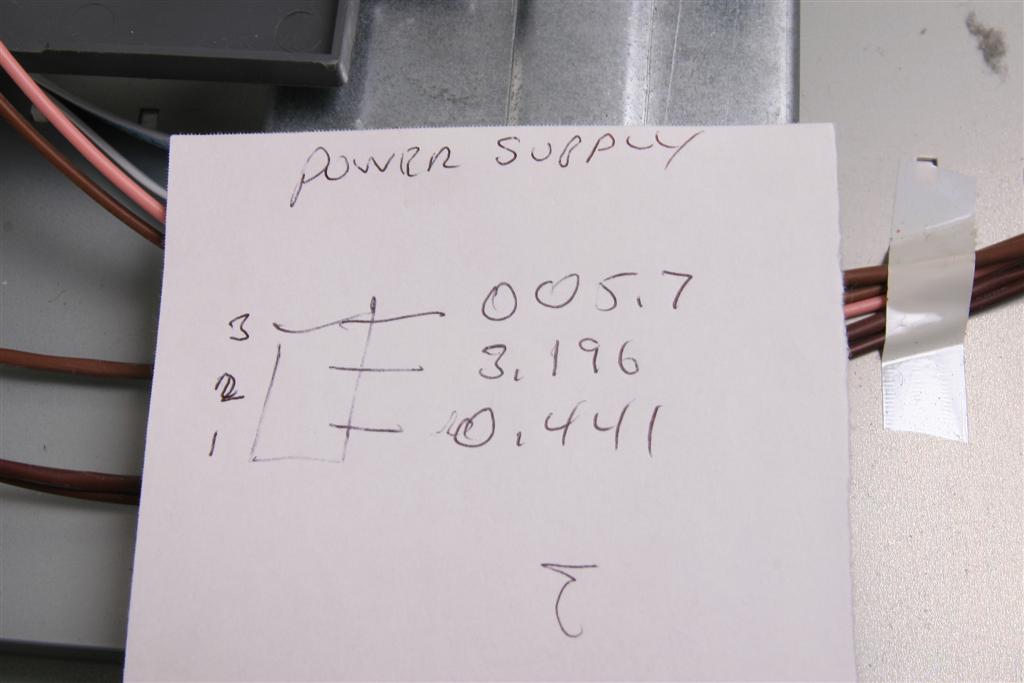 POWER SUPPLY
3 005.7
2 3.196
1 0.441